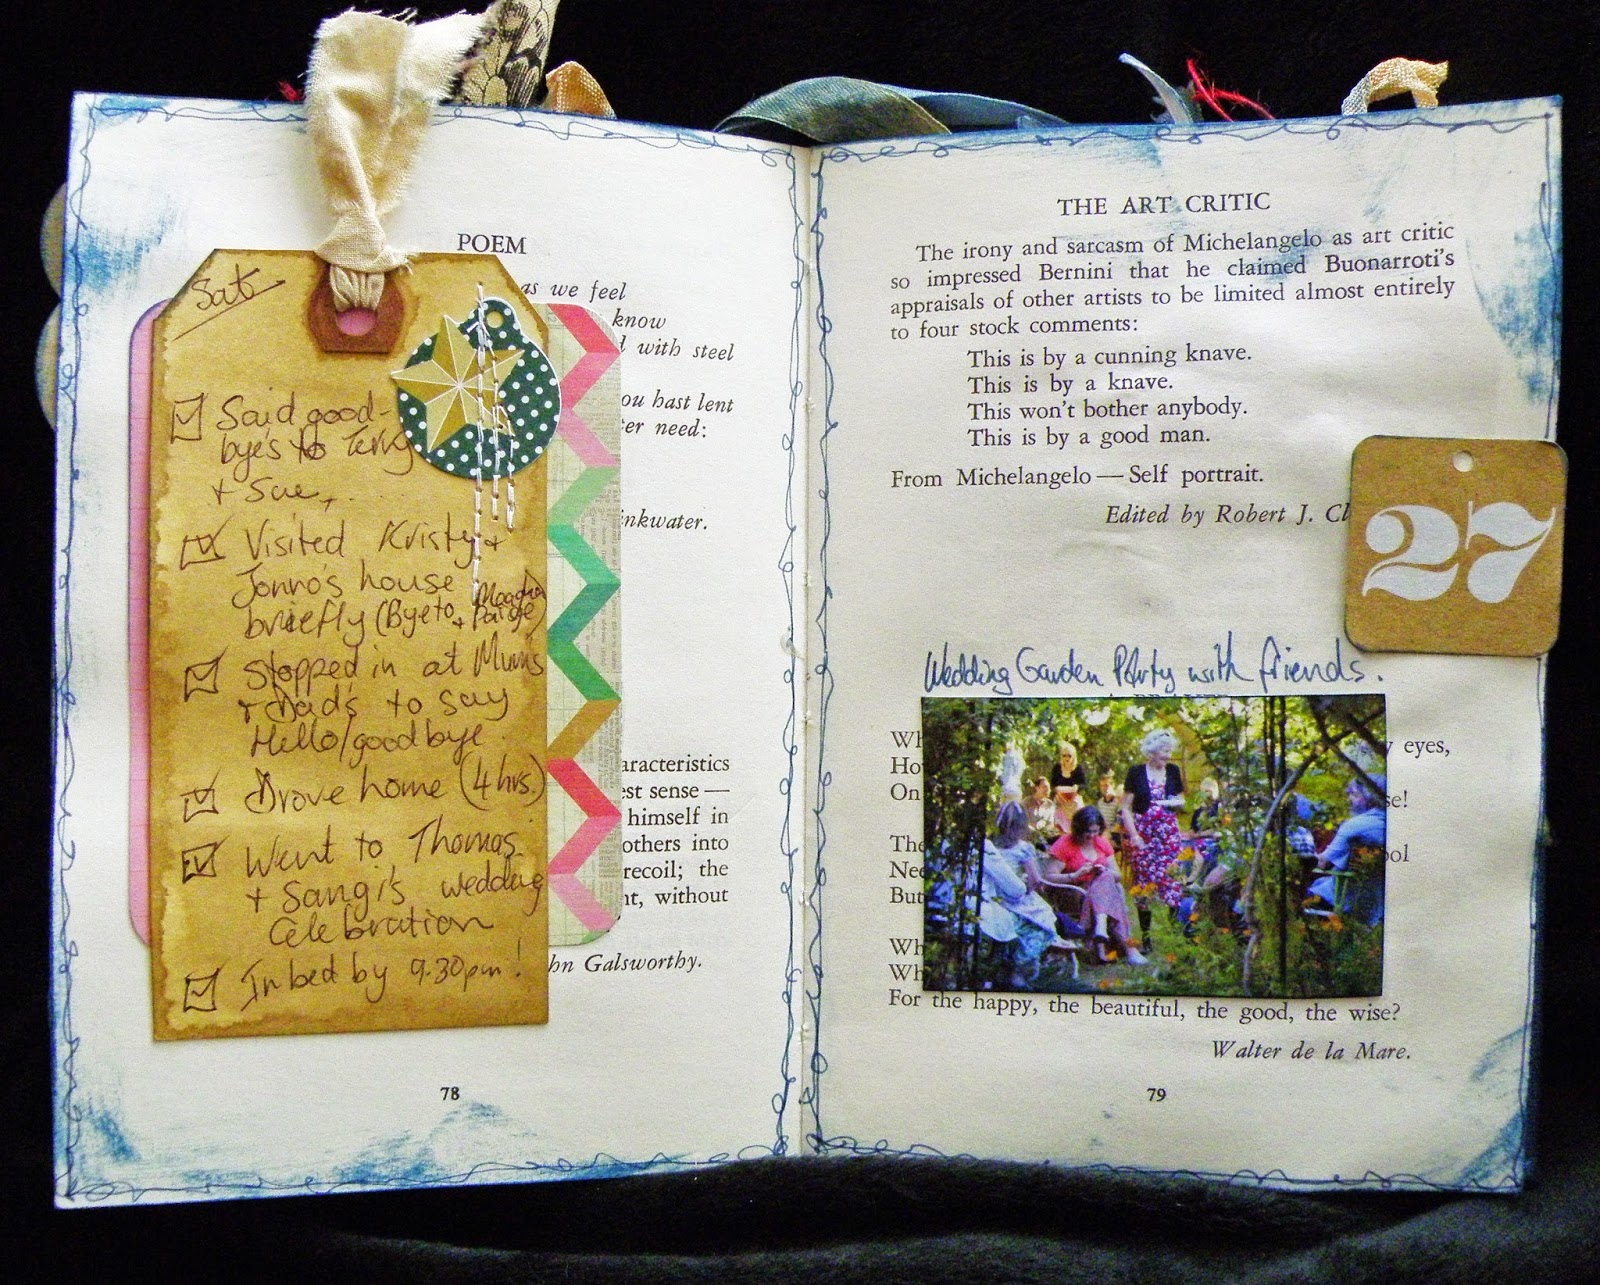 POEM
as we feel
know
with steel
ou hast lent
er need:
inkwater.
aracteristics
est sense —
himself in
others into
recoil; the
nt, without
hn Galsworthy.
78
Sat
Said good-
bye's to Terry
+ Sue,....
Visited Kristy +
Jonno's house
briefly (Bye to
+ Paige)
Stopped in at Mum's
+ Dad's to say
Hello/goodbye.
Drove home (4 hrs.)
Went to Thomas
+ Sangi's wedding
Celebration
In bed by 9.30pm!
THE ART CRITIC
The irony and sarcasm of Michelangelo as art critic
so impressed Bernini that he claimed Buonarroti's
appraisals of other artists to be limited almost entirely
to four stock comments:
This is by a cunning knave.
This is by a knave.
This won't bother anybody.
This is by a good man.
From Michelangelo — Self portrait.
Edited by Robert J. Cl
27
Wedding Garden Party with friends.
Wh
eyes,
Ho
On
se!
The
ool
Nee
But
Wh
Wh
For the happy, the beautiful, the good, the wise?
Walter de la Mare.
79